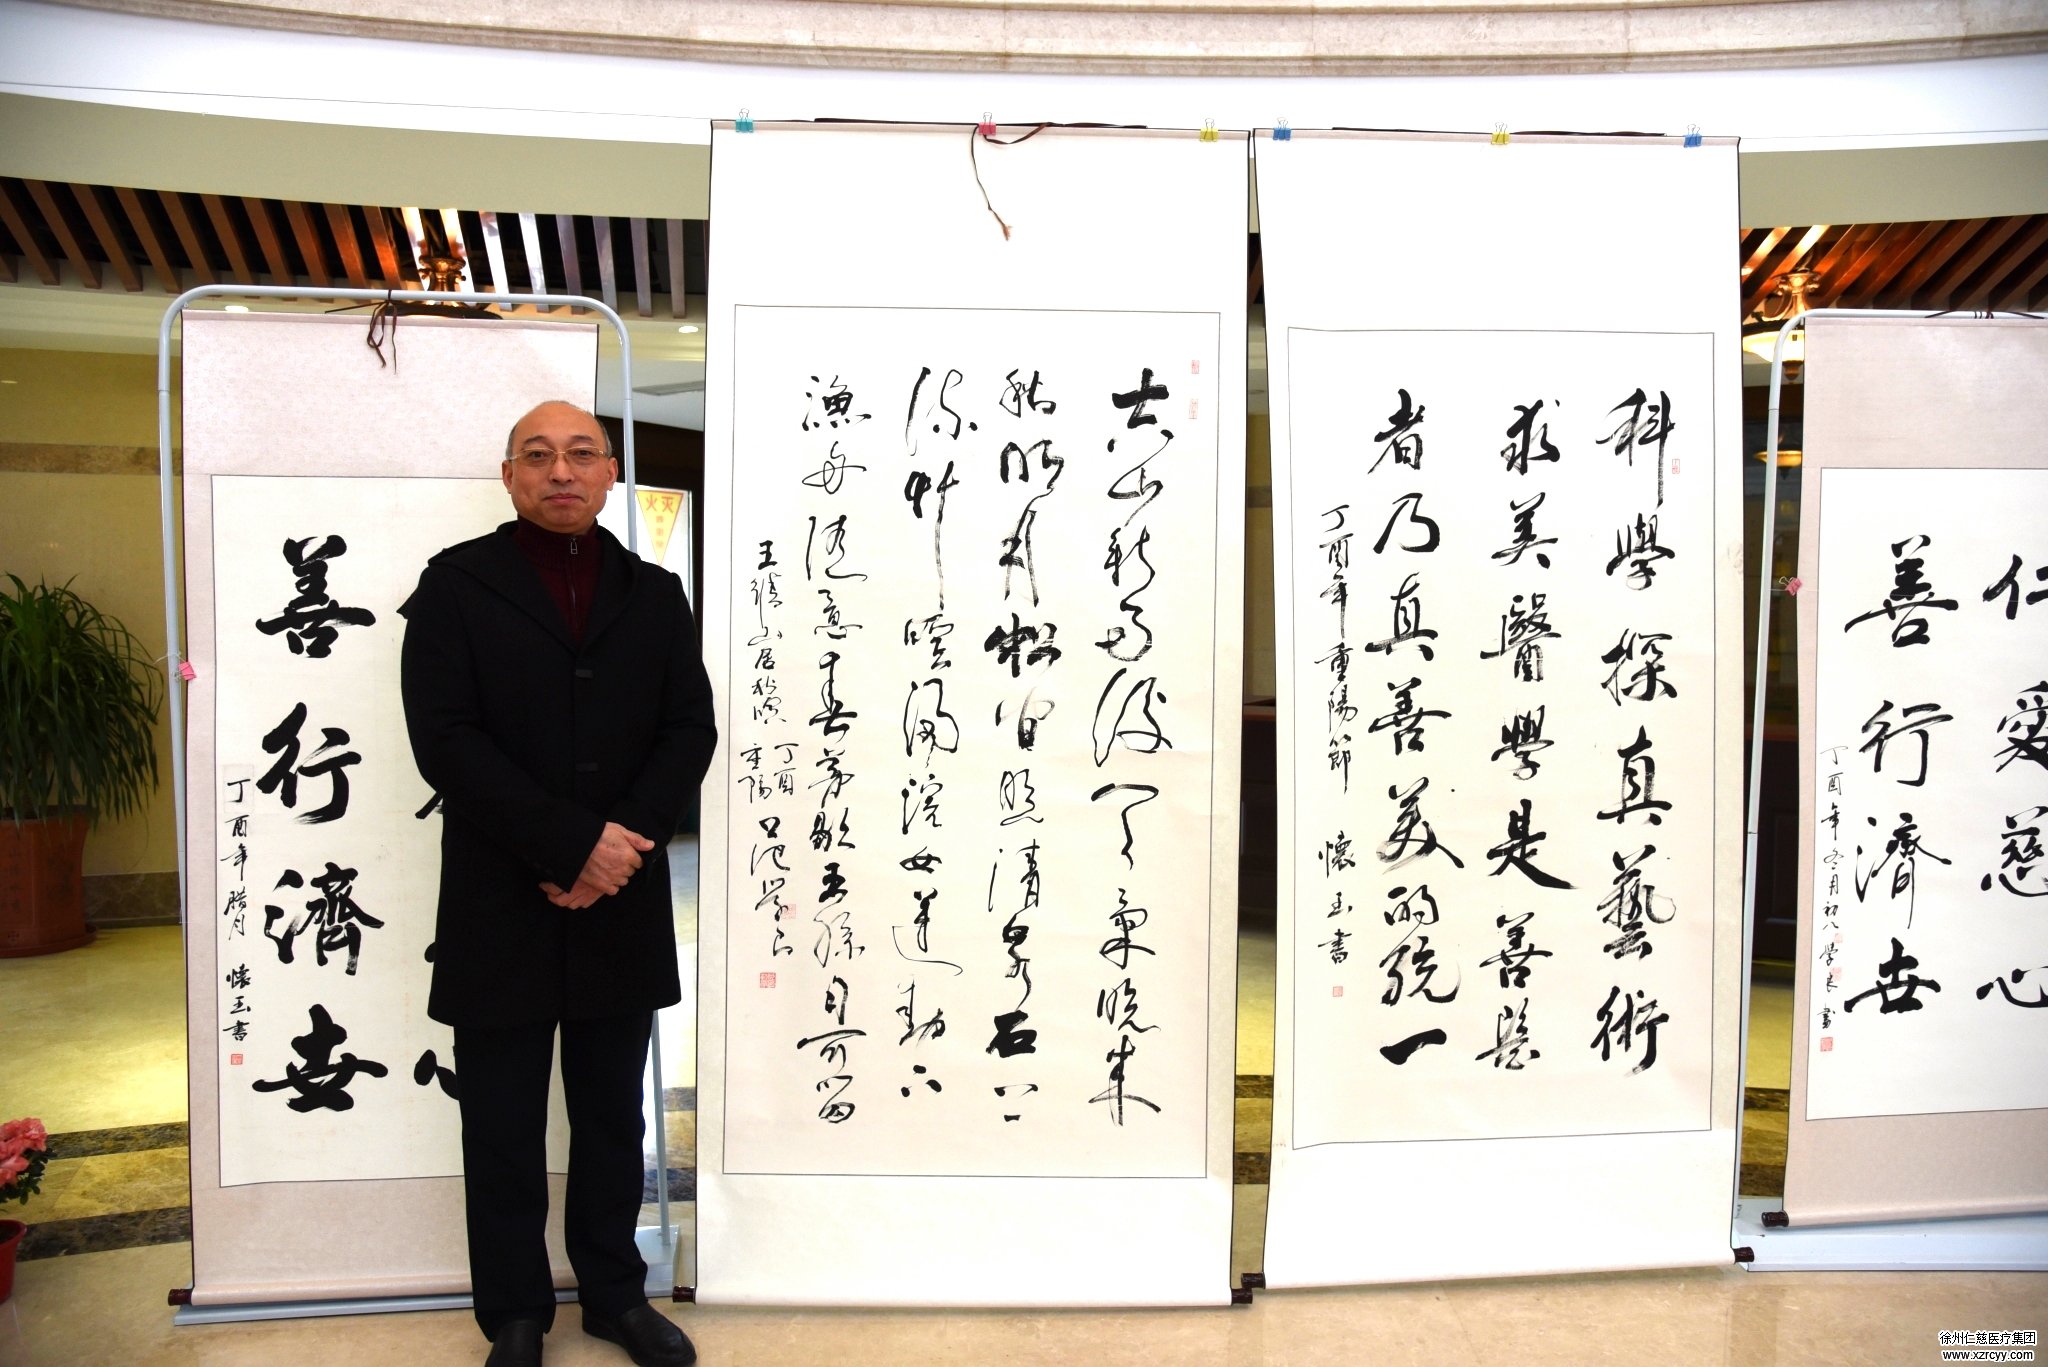 善行濟世
丁酉年腊月 懷玉書
空山新雨後天氣晚來
秋明月松間照清泉石上
流竹喧歸浣女蓮動下
漁舟隨意春芳歇王孫自可留
王維山居秋暝 丁酉重陽 學良
科學探真藝術
求美醫學是善醫
者乃真善美的統一
丁酉年重陽節 懷玉書
仁愛慈心
善行濟世
丁酉年冬月初八 學良書
徐州仁慈医疗集团
www.xzrcyy.com